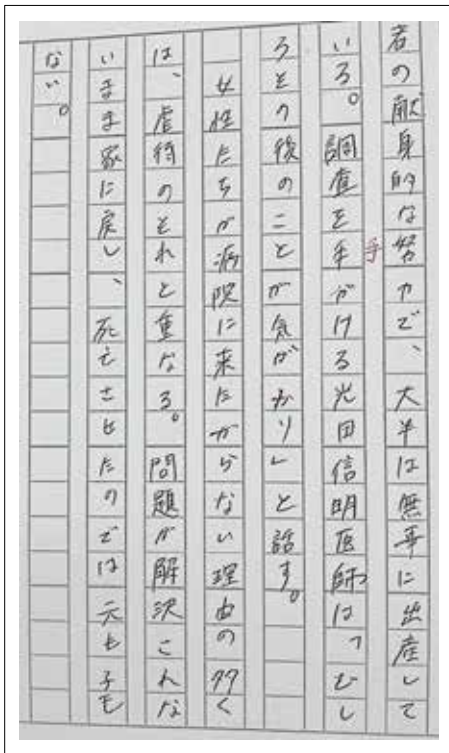 者の献身的な努力で、大半は無事に出産して
いる。調査を手がける光田信明医師は「むし
手
ろその後のことが気がかり」と話す。
女性たちが病院に来たがらない理由の多く
は、虐待のそれと重なる。問題が解決されな
いまま家に戻し、死亡させたのでは元も子も
ない。